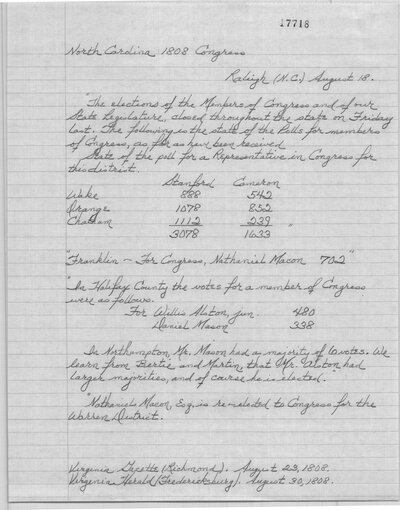 17718
North Carolina 1808 Congress
Raleigh (N.C.) August 18.
"The elections of the Members of Congress and of our
State Legislature, closed throughout the state on Friday
last. The following is the state of the Polls for members
of Congress, as far as have been received.
State of the poll for a Representative in Congress for
this district.
Stanford Cameron
Wake 888 542
Orange 1078 852
Chatham 1112 239 "
3078 1633
"Franklin — For Congress, Nathaniel Macon 702"
"In Halifax County the votes for a member of Congress
were as follows.
For Willis Alston, jun. 480
Daniel Mason 338
In Northampton, Mr. Mason had a majority of 6 votes. We
learn from Bertie and Martin, that Mr. Alston had
larger majorities, and of course he is elected.
"Nathaniel Macon, Esq. is re-elected to Congress for the
Warren District.
Virginia Gazette (Richmond). August 23, 1808.
Virginia Herald (Fredericksburg). August 30, 1808.